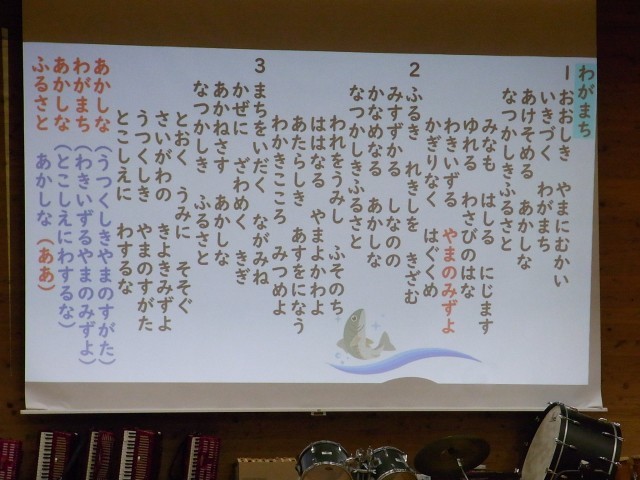 わがまち
1 おおしき やまにむかい
いきづく わがまち
あけそめる あかしな
なつかしきふるさと
みなも はしる にじます
ゆれる わさびのはな
わきいずる やまのみずよ
かぎりなく はぐくめ
2 ふるき れきしを きざむ
みすずかる しなのの
かなめなる あかしな
なつかしきふるさと
われをうみし ふそのち
ははなる やまよかわよ
あたらしき あすをになう
わかきこころ みつめよ
3 まちをいだく ながみね
かぜに ざわめく きぎ
あかねさす あかしな
なつかしき ふるさと
とおく うみに そそぐ
さいがわの きよきみずよ
うつくしき やまのすがた
とこしえに わするな
あかしな (うつくしきやまのすがた)
わがまち (わきいずるやまのみずよ)
あかしな (とこしえにわするな)
ふるさと あかしな (ああ)